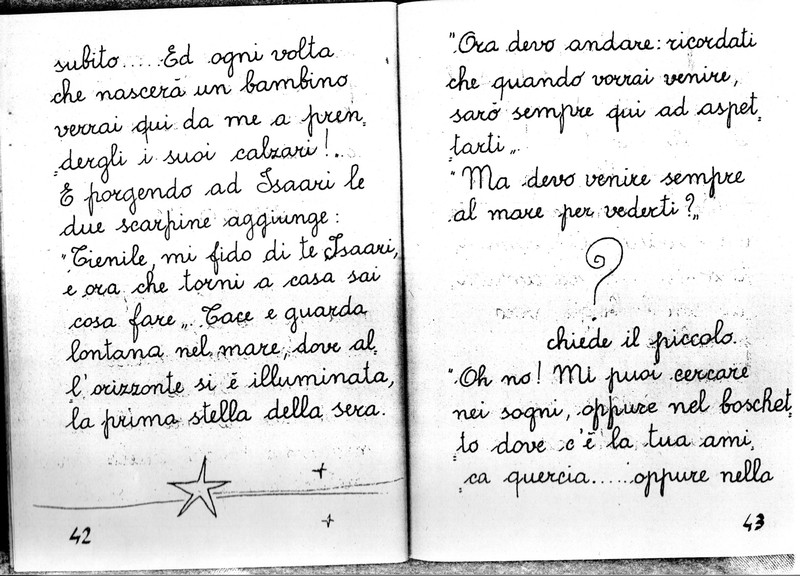 subito.....Ed ogni volta
che nascerà un bambino
verrai qui da me a pren,
,dergli i suoi calzari!..
E porgendo ad Isaari le
due scarpine aggiunge:
"Tienile, mi fido di te Isaari,
e ora che torni a casa sai
cosa fare„. Tace e guarda
lontana nel mare, dove al,
l'orizzonte si è illuminata,
la prima stella della sera.
42
"Ora devo andare: ricordati
che quando vorrai venire,
sarò sempre qui ad aspet,
,tarti„.
"Ma devo venire sempre
al mare per vederti?„
?
chiede il piccolo.
"Oh no! Mi puoi cercare
nei sogni, oppure nel boschet,
,to dove c'è la tua ami,
,ca quercia.....oppure nella
43